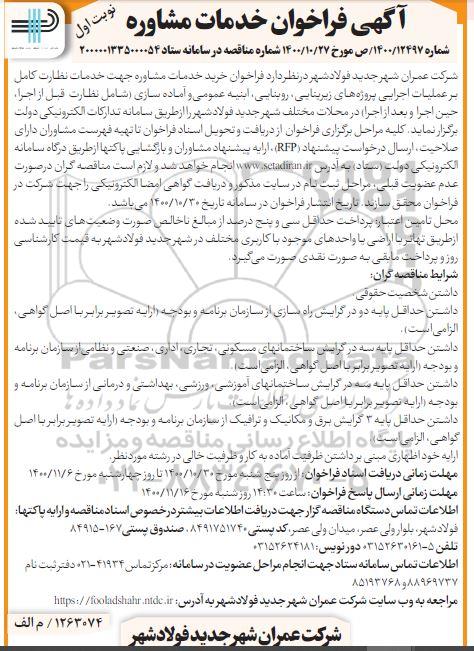 آگهی فراخوان خدمات مشاوره
نوبت اول
شماره ۱۴۰۰/۱۲۴۹۷/ص مورخ ۱۴۰۰/۱۰/۲۷ شماره مناقصه در سامانه ستاد ۲۰۰۰۰۰۱۳۳۵۰۰۰۰۵۴
شرکت عمران شهر جدید فولادشهر در نظر دارد فراخوان خرید خدمات مشاوره جهت خدمات نظارت کامل
بر عملیات اجرایی پروژه‌های زیربنایی، روبنایی، ابنیه عمومی و آماده سازی (شامل نظارت قبل از اجرا،
حین اجرا و بعد از اجرا) در محلات مختلف شهر جدید فولادشهر را از طریق سامانه تدارکات الکترونیکی دولت
برگزار نماید. کلیه مراحل برگزاری فراخوان از دریافت و تحویل اسناد فراخوان تا تهیه فهرست مشاوران دارای
صلاحیت، ارسال درخواست پیشنهاد (RFP)، ارایه پیشنهاد مشاوران و بازگشایی پاکتها از طریق درگاه سامانه
الکترونیکی دولت (ستاد) به آدرس www.setadiran.ir انجام خواهد شد و لازم است مناقصه گران در صورت
عدم عضویت قبلی، مراحل ثبت نام در سایت مذکور و دریافت گواهی امضا الکترونیکی را جهت شرکت در
فراخوان محقق سازند. تاریخ انتشار فراخوان در سامانه تاریخ ۱۴۰۰/۱۰/۳۰ می‌باشد.
محل تامین اعتبار: پرداخت حداقل سی و پنج درصد از مبالغ ناخالص صورت وضعیت‌های تایید شده
از طریق تهاتر با اراضی یا واحدهای موجود با کاربری مختلف در شهر جدید فولادشهر به قیمت کارشناسی
روز و پرداخت مابقی به صورت نقدی صورت می‌گیرد.
شرایط مناقصه گران:
داشتن شخصیت حقوقی.
داشتن حداقل پایه دو در گرایش راه سازی از سازمان برنامه و بودجه (ارایه تصویر برابر با اصل گواهی،
الزامی است).
داشتن حداقل پایه سه در گرایش ساختمانهای مسکونی، تجاری، اداری، صنعتی و نظامی از سازمان برنامه
و بودجه (ارایه تصویر برابر با اصل گواهی، الزامی است).
داشتن حداقل پایه سه در گرایش ساختمانهای آموزشی، ورزشی، بهداشتی و درمانی از سازمان برنامه و
بودجه (ارایه تصویر برابر با اصل گواهی، الزامی است).
داشتن حداقل پایه ۳ گرایش برق و مکانیک و ترافیک از سازمان برنامه و بودجه (ارایه تصویر برابر با اصل
گواهی، الزامی است).
ارایه خود اظهاری مبنی بر داشتن ظرفیت آماده به کار و ظرفیت خالی در رشته مورد نظر.
مهلت زمانی دریافت اسناد فراخوان: از روز پنج شنبه مورخ ۱۴۰۰/۱۰/۳۰ تا روز چهارشنبه مورخ ۱۴۰۰/۱۱/۶
مهلت زمانی ارسال پاسخ فراخوان: ساعت ۱۴:۳۰ روز شنبه مورخ ۱۴۰۰/۱۱/۱۶
اطلاعات تماس دستگاه مناقصه گزار جهت دریافت اطلاعات بیشتر در خصوص اسناد مناقصه و ارایه پاکتها:
فولادشهر، بلوار ولی عصر، میدان ولی عصر، کد پستی ۸۴۹۱۷۵۱۷۴۰، صندوق پستی ۱۶۷-۸۴۹۱۵
تلفن ۵-۰۳۱۵۲۶۳۰۱۶۱ دورنویس: ۰۳۱۵۲۶۲۴۱۸۱
اطلاعات تماس سامانه ستاد جهت انجام مراحل عضویت در سامانه: مرکز تماس ۴۱۹۳۴-۰۲۱ دفتر ثبت نام
۸۸۹۶۹۷۳۷ و ۸۵۱۹۳۷۶۸
مراجعه به وب سایت شرکت عمران شهر جدید فولادشهر به آدرس: https://fooladshahr.ntdc.ir
۱۲۶۳۰۷۴ / م الف
شرکت عمران شهر جدید فولادشهر